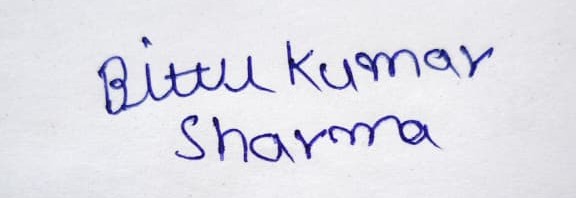 Bittu Kumar
Sharma